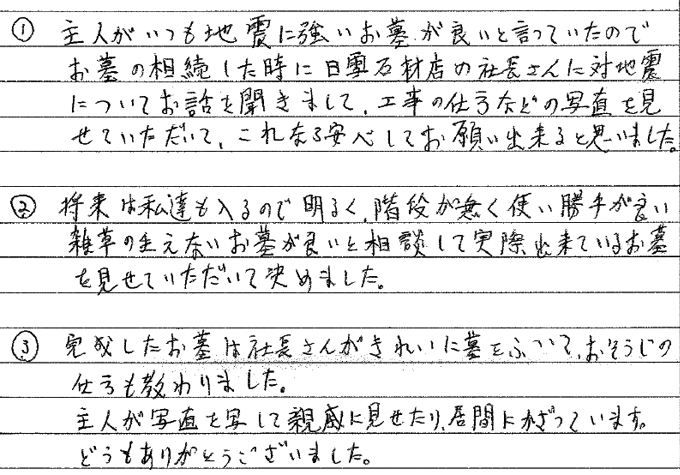 ① 主人がいつも地震に強いお墓が良いと言っていたので
お墓の相続した時に日雲石材店の社長さんに対地震
についてお話を聞きまして、工事の仕方などの写真を見
せていただいて、これなら安心してお願い出来ると思いました。
② 将来は私達も入るので明るく、階段が無く使い勝手が良い
雑草の生えないお墓が良いと相談して実際出来ているお墓
を見せていただいて決めました。
③ 完成したお墓は社長さんがきれいに墓をふいて、おそうじの
仕方も教わりました。
主人が写真を写して親戚に見せたり、居間にかざっています。
どうもありがとうございました。